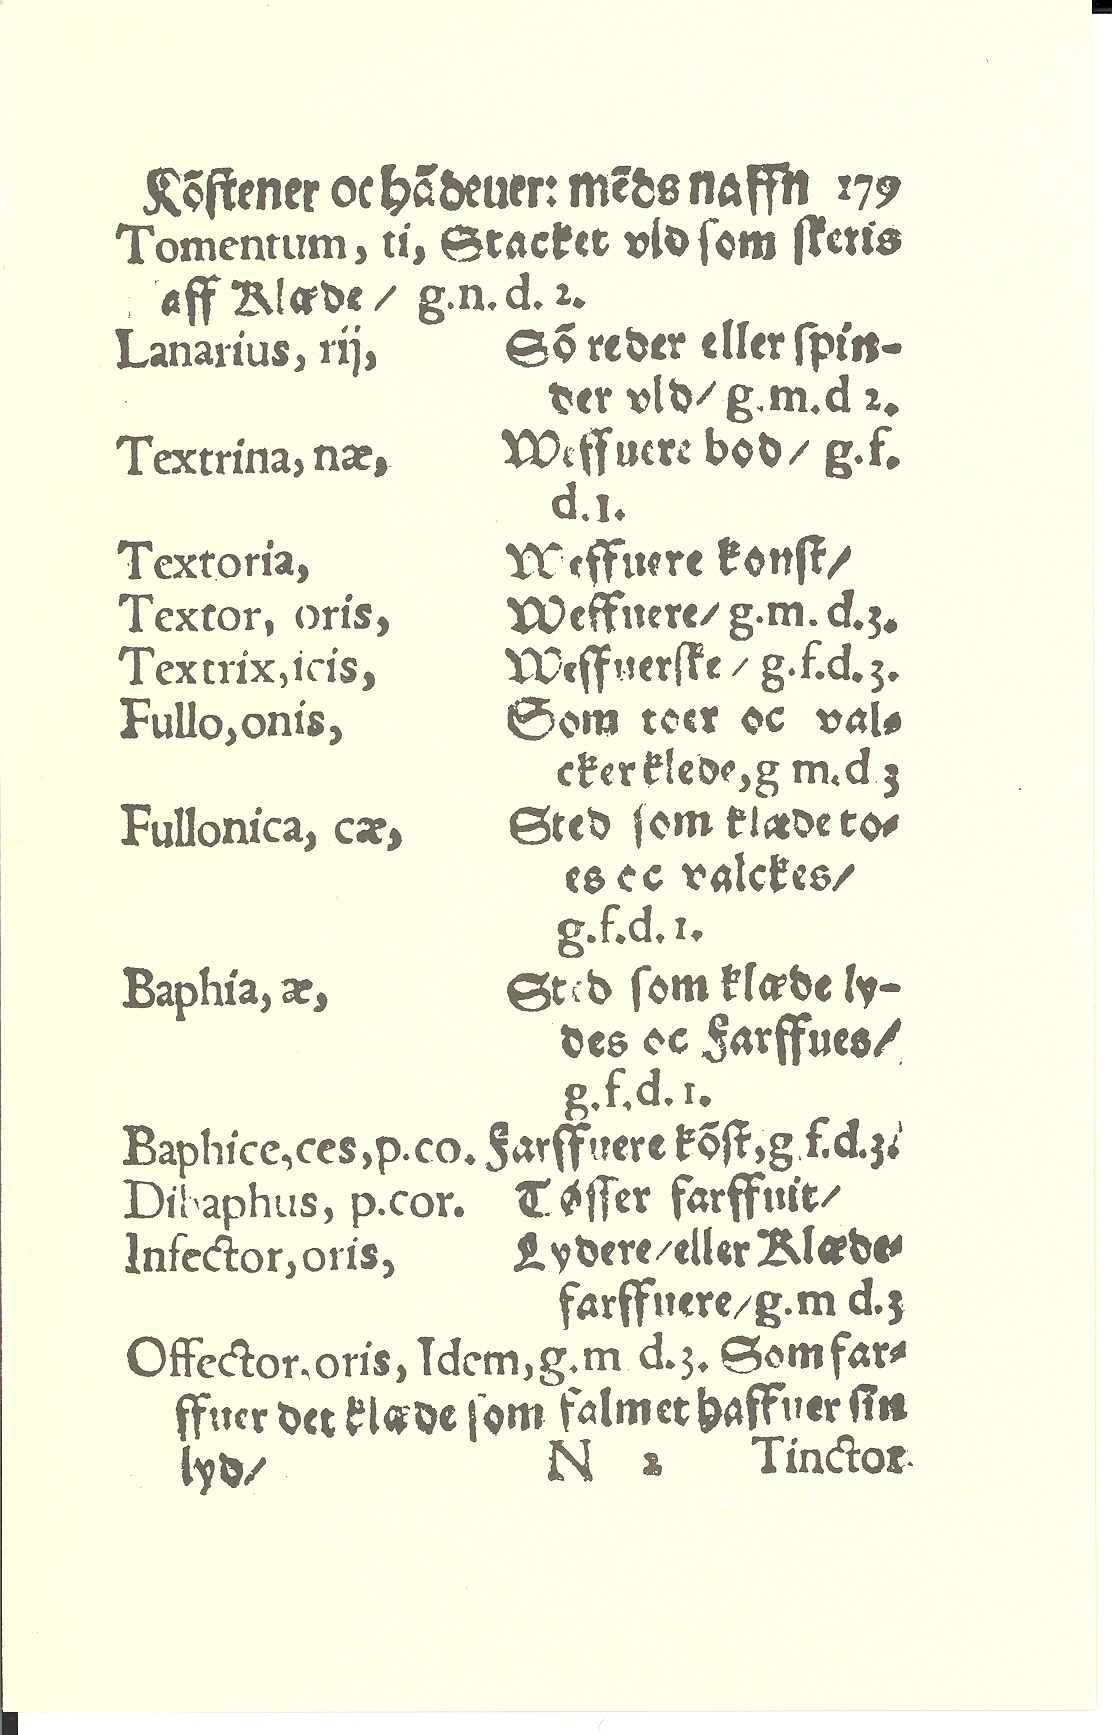 Kõstener oc hãdeuer: mẽds naffn 179
Tomentum, ti, Stacket vld som skeris
aff Klæde / g.n.d. 2.
Lanarius, rij, Sõ reder eller spin-
der vld/ g.m.d 2.
Textrina, næ, Weffuere bod / g.f.
d.1.
Textoria, Weffuere konst/
Textor, oris, Weffuere/ g.m. d.3.
Textrix, icis, Weffuerske / g.f.d.3.
Fullo, onis, Som toer oc val-
cker klede, g m.d 3
Fullonica, cæ, Sted som klæde to-
es oc valckes/
g.f.d. 1.
Baphia, æ, Sted som klæde ly-
des oc farffues/
g.f.d. 1.
Baphice, ces, p.co. Farffuere kõst, g f.d.3.
Dibaphus, p.cor. Tøsser farffuit/
Infector, oris, Lydere/eller Klæde-
farffuere/g.m d.3
Offector. oris, Idem, g.m d.3. Som far-
ffuer det klæde som falmet haffuer sin
lyd/ N 2 Tinctor